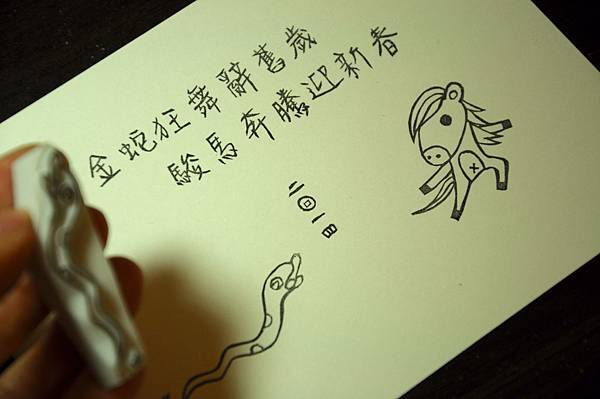 金蛇狂舞辭舊歲
駿馬奔騰迎新春
二〇一四